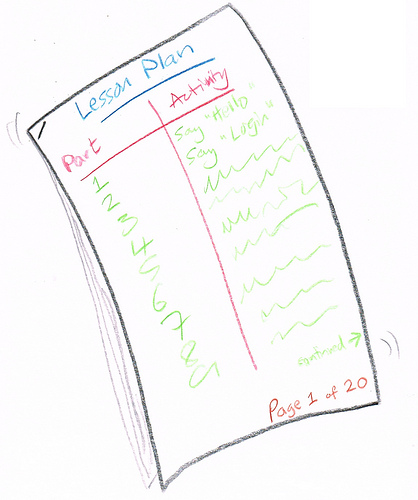 Lesson Plan
Part Activity
1 Say "Hello"
2 Say "Login"
3
4
5
6
7
8
9
continued →
Page 1 of 20